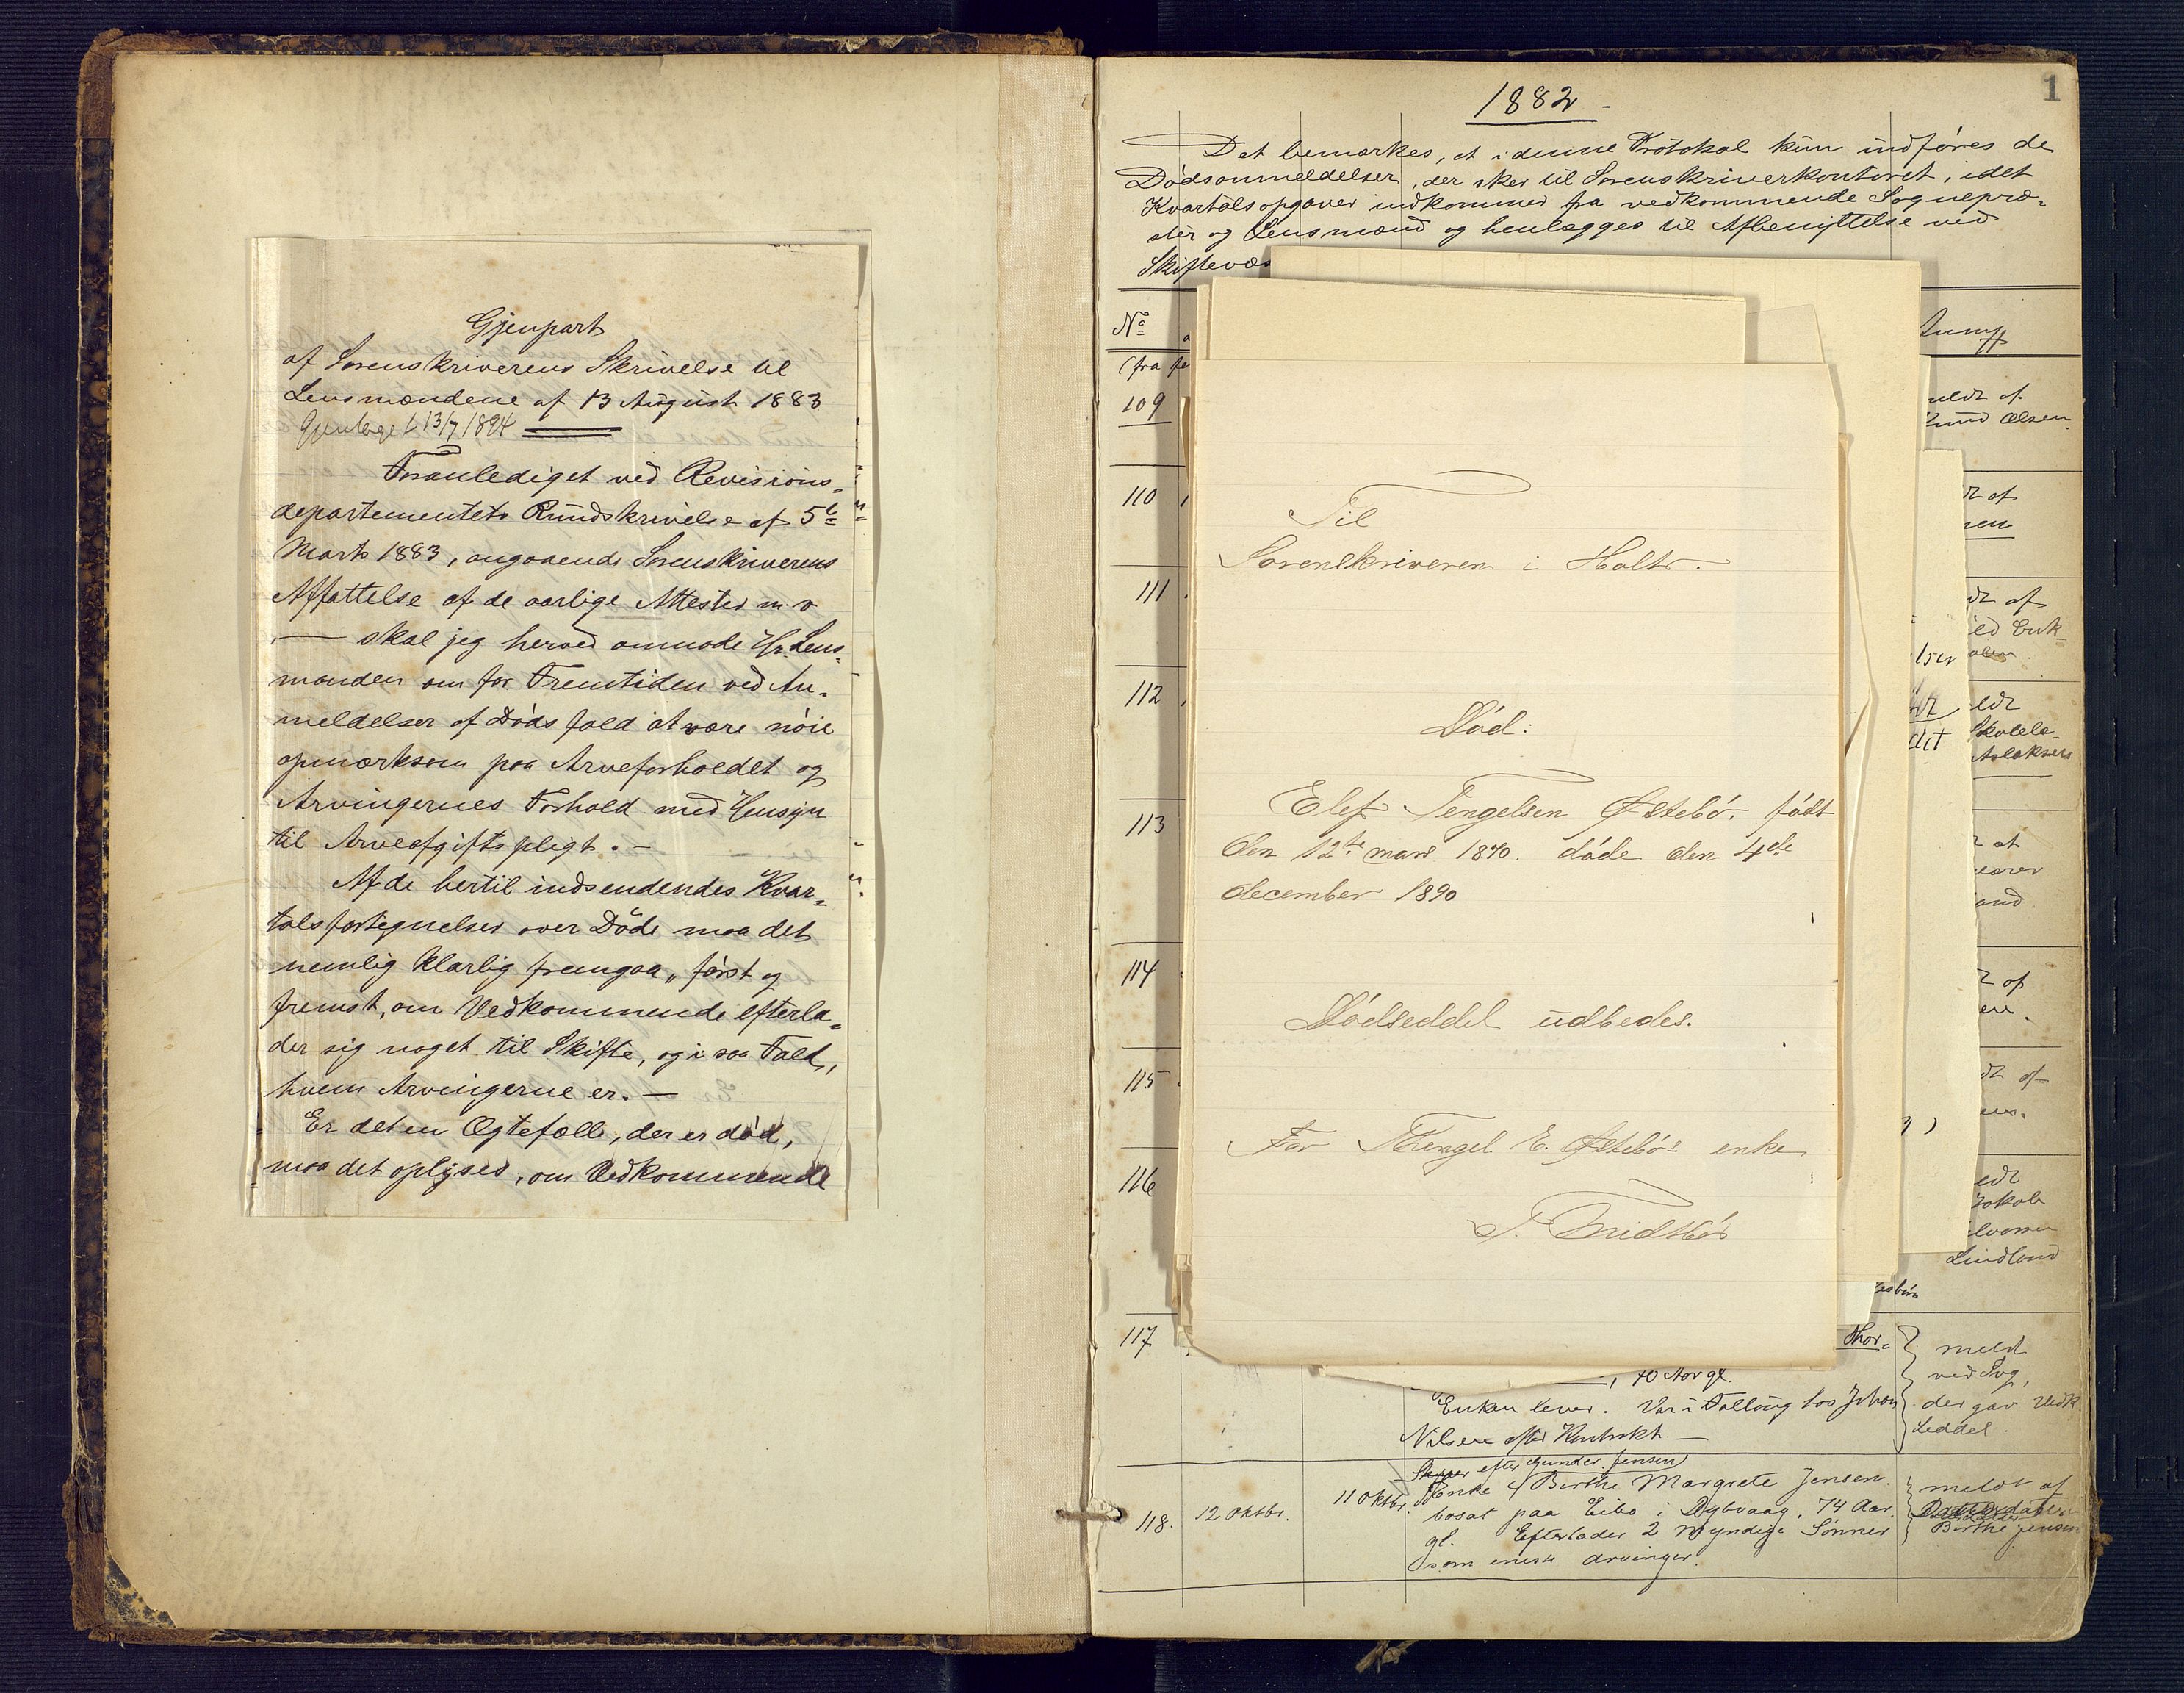 Gjenpart
af Sorenskriverens Skrivelse til
Lensmændene af 13 August 1883
Gjentaget 13/7 1894
Foranlediget ved Revisions=
departementets Rundskrivelse af 5te
Marts 1883, angaaende Sorenskriverens
Affattelse af de aarlige Attester m. v
— skal jeg herved anmode Hr. Lens=
manden om for Fremtiden ved An=
meldelser af Dødsfald at være nøie
opmærksom paa Arveforholdet og
Arvingernes Forhold med Hensyn
til Arveafgiftspligt. —
Af de hertil indsendendes Kvar=
talsfortegnelser over Døde maa det
nemlig klarlig fremgaa, først og
fremst, om Vedkommende efterla=
der sig noget til Skifte, og i saa Fald,
hvem Arvingerne er. —
Er det en Ægtefælle, der er død,
maa det oplyses, om Vedkommende
1
1882 -
Det bemærkes, at i denne Protokol kun indføres de
Dødsanmeldelser, der sker til Sorenskriverkontoret, idet
Kvartalsopgaver indkommer fra vedkommende Sognepræ=
ster og Lensmænd og henlægges til Afbenyttelse ved
Skiftevæ
No
(fra
109
meldt af
Olsen
110
af
111
af
112
113
114
af
115
af
116
Jakob
Lindland
Til
Sorenskriveren i Holt.
Død:
Elef Tengelsen Østebø, født
den 12te mars 1840. døde den 4de
december 1890
Dødseddel udbedes.
For Thengel E. Østebøs enke
117
Thor=
meldt
ved Sog,
der gav Vedk.
Seddel.
, 70 Aar gl.
Enken lever. Var i Føllaug hos Johan
Nilsen efter Kontrakt —
118. 12 Oktbr. 11 Oktbr.
efter Gunder Jensen
Enke Birthe Margrete Jensen
bosat paa Eibo i Dybvaag, 74 Aar
gl. Efterlader 2 myndige Sønner
som eneste Arvinger.
meldt af
Birthe Jensen